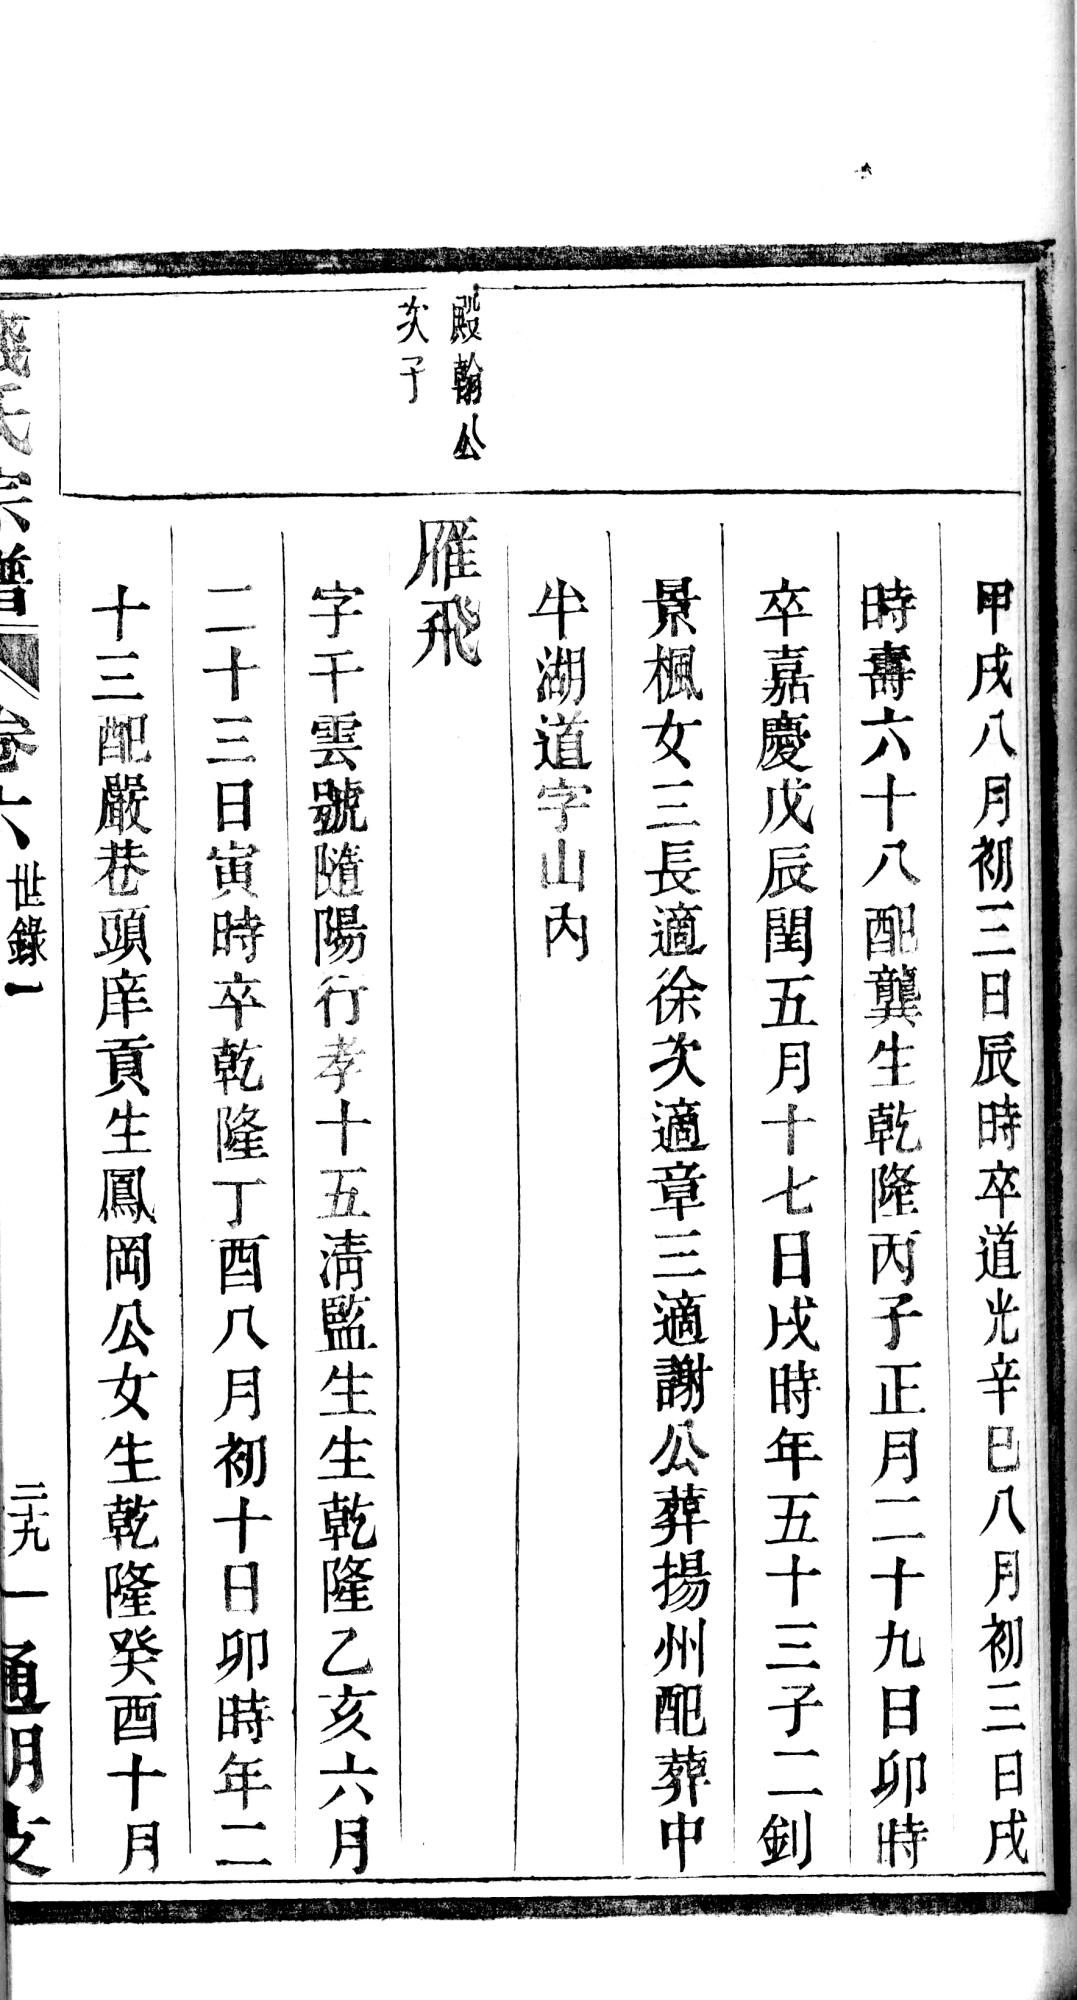 甲戌八月初三日辰時卒道光辛巳八月初三日戌
時壽六十八配龔生乾隆丙子正月二十九日卯時
卒嘉慶戊辰閏五月十七日戌時年五十三子二釗
景楓女三長適徐次適章三適謝公葬揚州配葬中
牛湖道字山內
殿翰公
次子
雁飛
字干雲號隨陽行孝十五淸監生生乾隆乙亥六月
二十三日寅時卒乾隆丁酉八月初十日卯時年二
十三配嚴巷頭庠貢生鳳岡公女生乾隆癸酉十月
氏宗譜 卷六 世錄一 二九 通明支